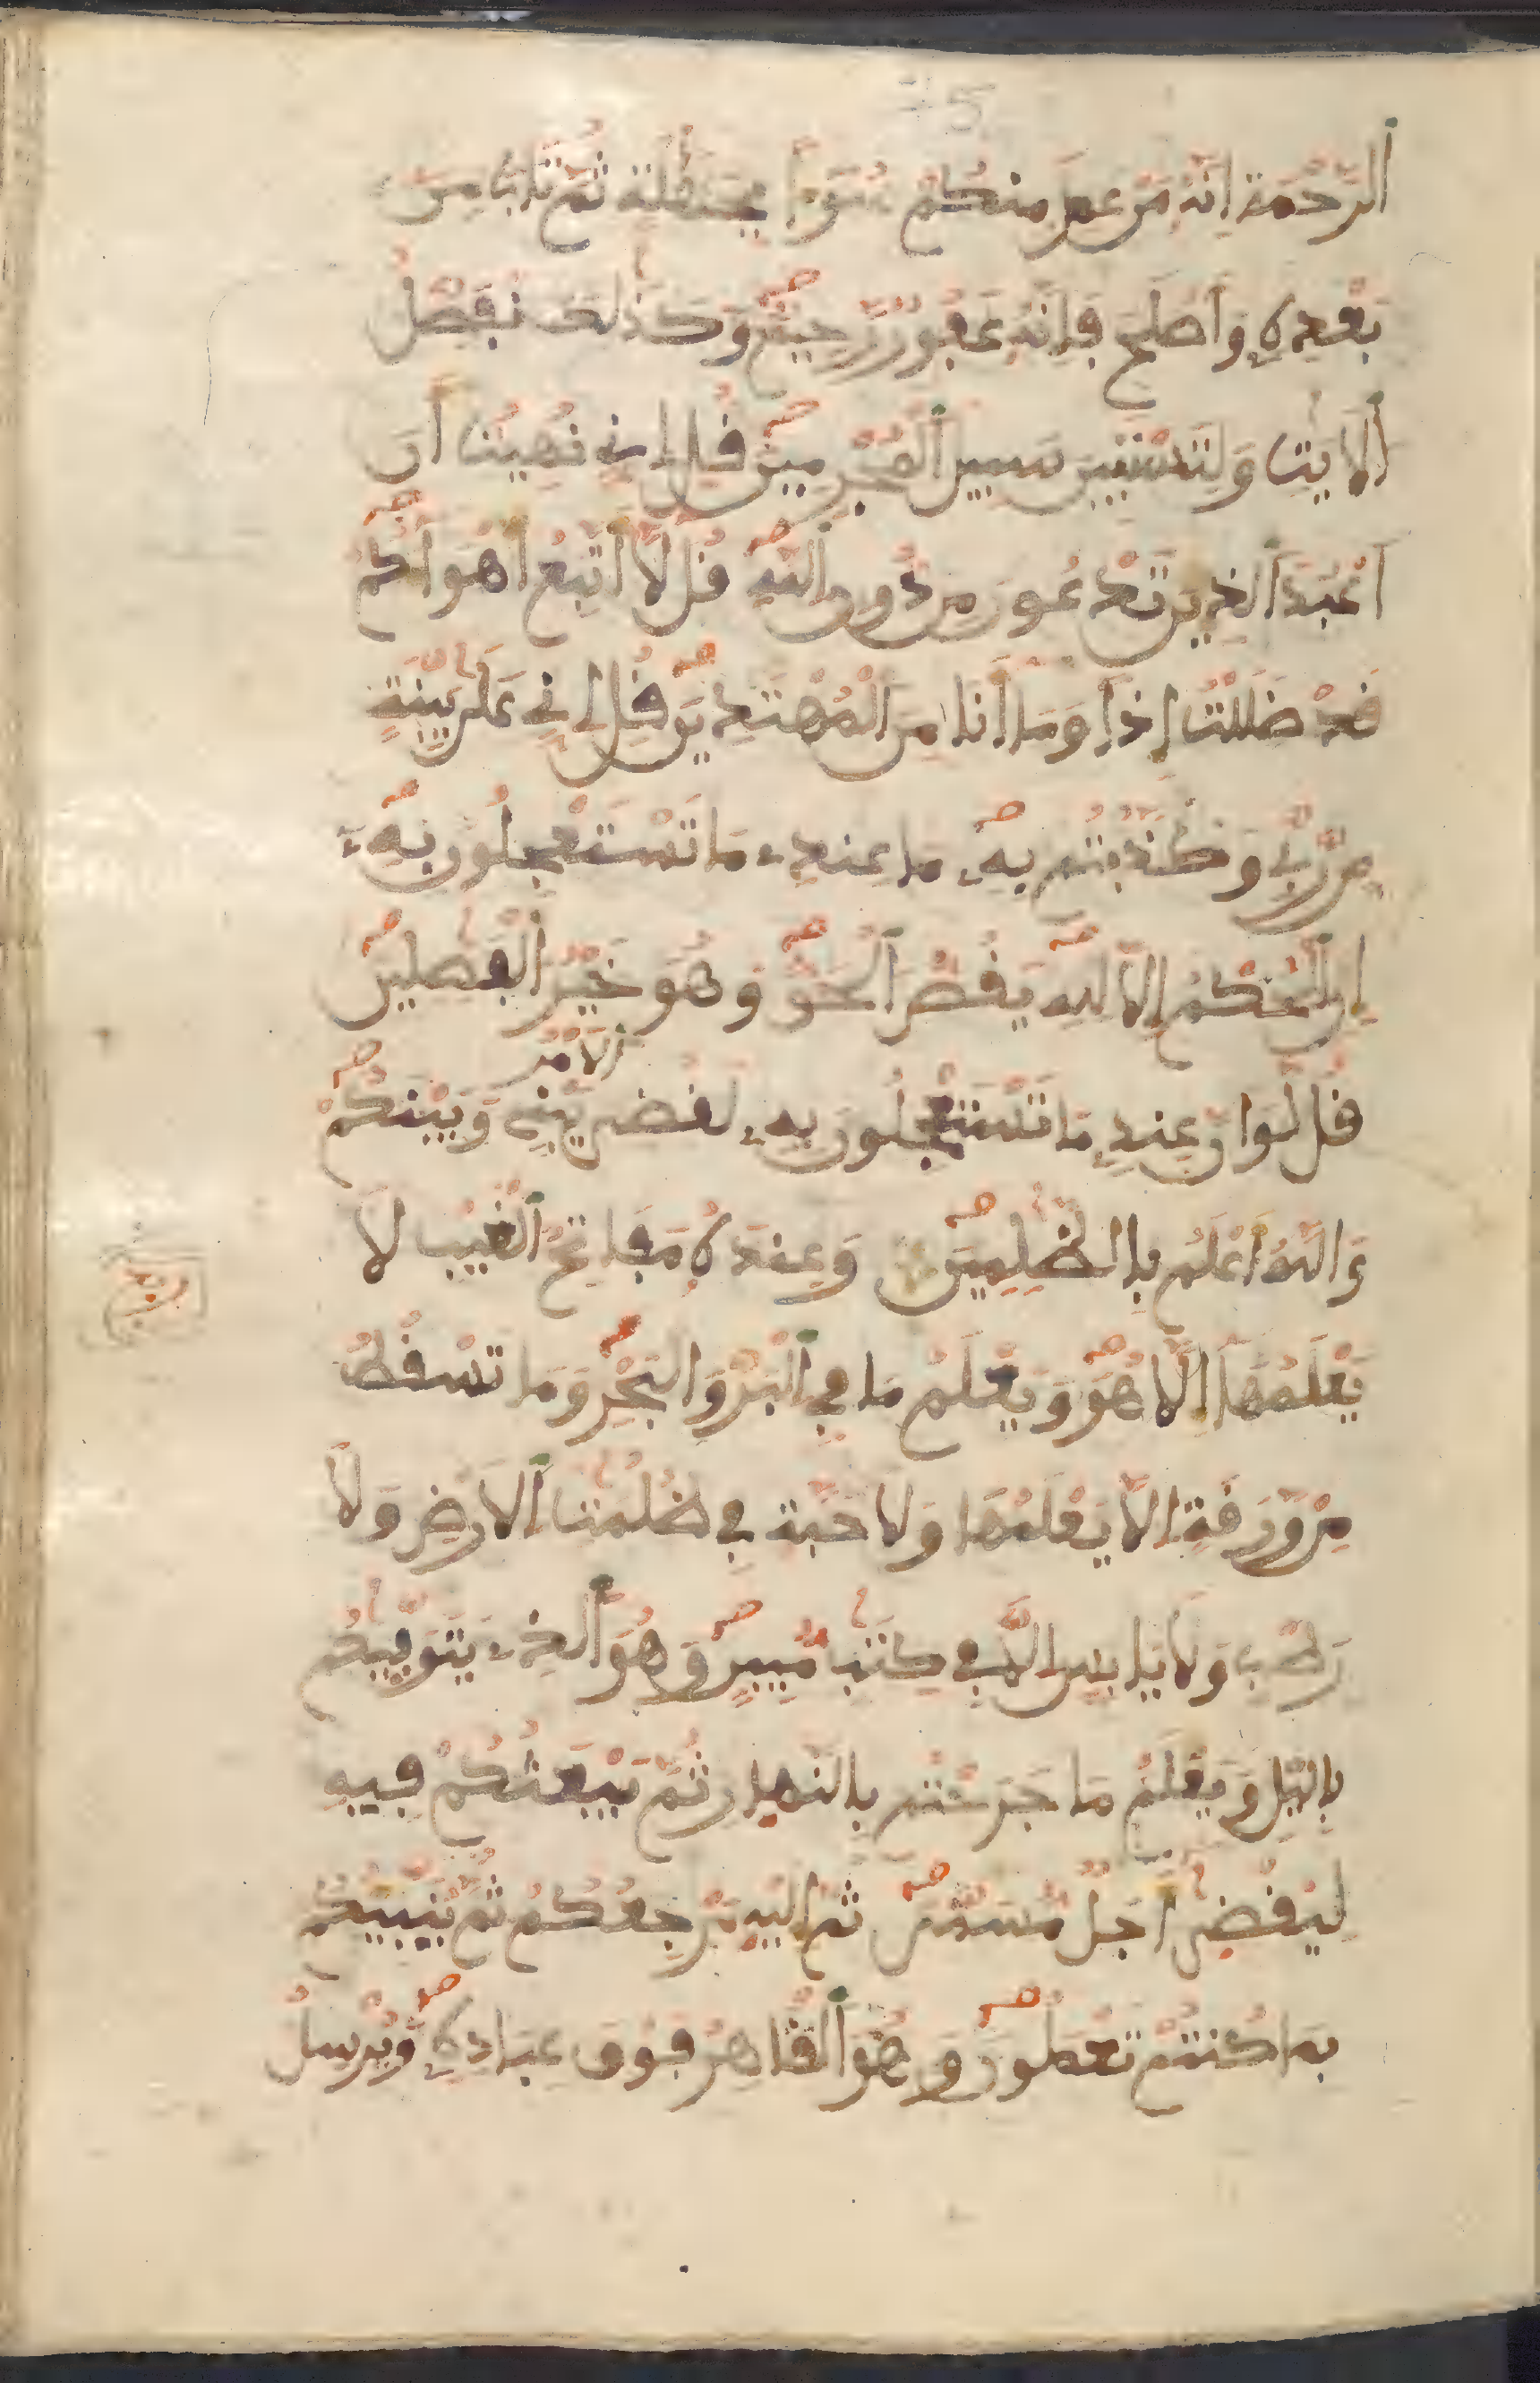 الرَّحْمَةَ إِنَّهُ مَنْ عَمِلَ مِنكُمْ سُوٓءًا بِجَهَٰلَةٍ ثُمَّ تَابَ مِنۢ
بَعْدِهِ وَأَصْلَحَ فَإِنَّهُ غَفُورٌ رَّحِيمٌ وَكَذَٰلِكَ نُفَصِّلُ
الَايَٰتِ وَلِتَسْتَبِينَ سَبِيلَ الْمُجْرِمِينَ قُلِ انِّي نُهِيتُ أَنَ
اَعْبُدَ الذِينَ تَدْعُونَ مِن دُونِ اللَّهِ قُل لَّا أَتَّبِعُ أَهْوَاءَكُمْ
قَدْ ضَلَلْتُ إِذًا وَمَا أَنَا مِنَ الْمُهْتَدِينَ قُلِ انِّي عَلَىٰ بَيِّنَةٍ
مِّن رَّبِّي وَكَذَّبْتُم بِهِ مَا عِندِي مَا تَسْتَعْجِلُونَ بِهِ
إِنِ الْحُكْمُ إِلَّا لِلهِ يَقُصُّ الْحَقَّ وَهُوَ خَيْرُ الْفَٰصِلِينَ
قُل لَّوَ انَّ عِندِي مَا تَسْتَعْجِلُونَ بِهِ لَقُضِيَ الَامْرُ بَيْنِي وَبَيْنَكُمْ
وَاللَّهُ أَعْلَمُ بِالظَّٰلِمِينَ وَعِندَهُ مَفَاتِحُ الْغَيْبِ لَا
يَعْلَمُهَا إِلَّا هُوَ وَيَعْلَمُ مَا فِي الْبَرِّ وَالْبَحْرِ وَمَا تَسْقُطُ
مِنْ وَرَقَةٍ إِلَّا يَعْلَمُهَا وَلَا حَبَّةٍ فِي ظُلُمَٰتِ الَارْضِ وَلَا
رَطْبٍ وَلَا يَابِسٍ إِلَّا فِي كِتَٰبٍ مُّبِينٍ وَهُوَ الذِي يَتَوَفَّيٰكُم
بِاليْلِ وَيَعْلَمُ مَا جَرَحْتُم بِالنَّهَارِ ثُمَّ يَبْعَثُكُمْ فِيهِ
لِيُقْضَىٰ أَجَلٌ مُّسَمًّى ثُمَّ إِلَيْهِ مَرْجِعُكُمْ ثُمَّ يُنَبِّئُكُم
بِمَا كُنتُمْ تَعْمَلُونَ وَهُوَ الْقَاهِرُ فَوْقَ عِبَادِهِ وَيُرْسِلُ
ربع